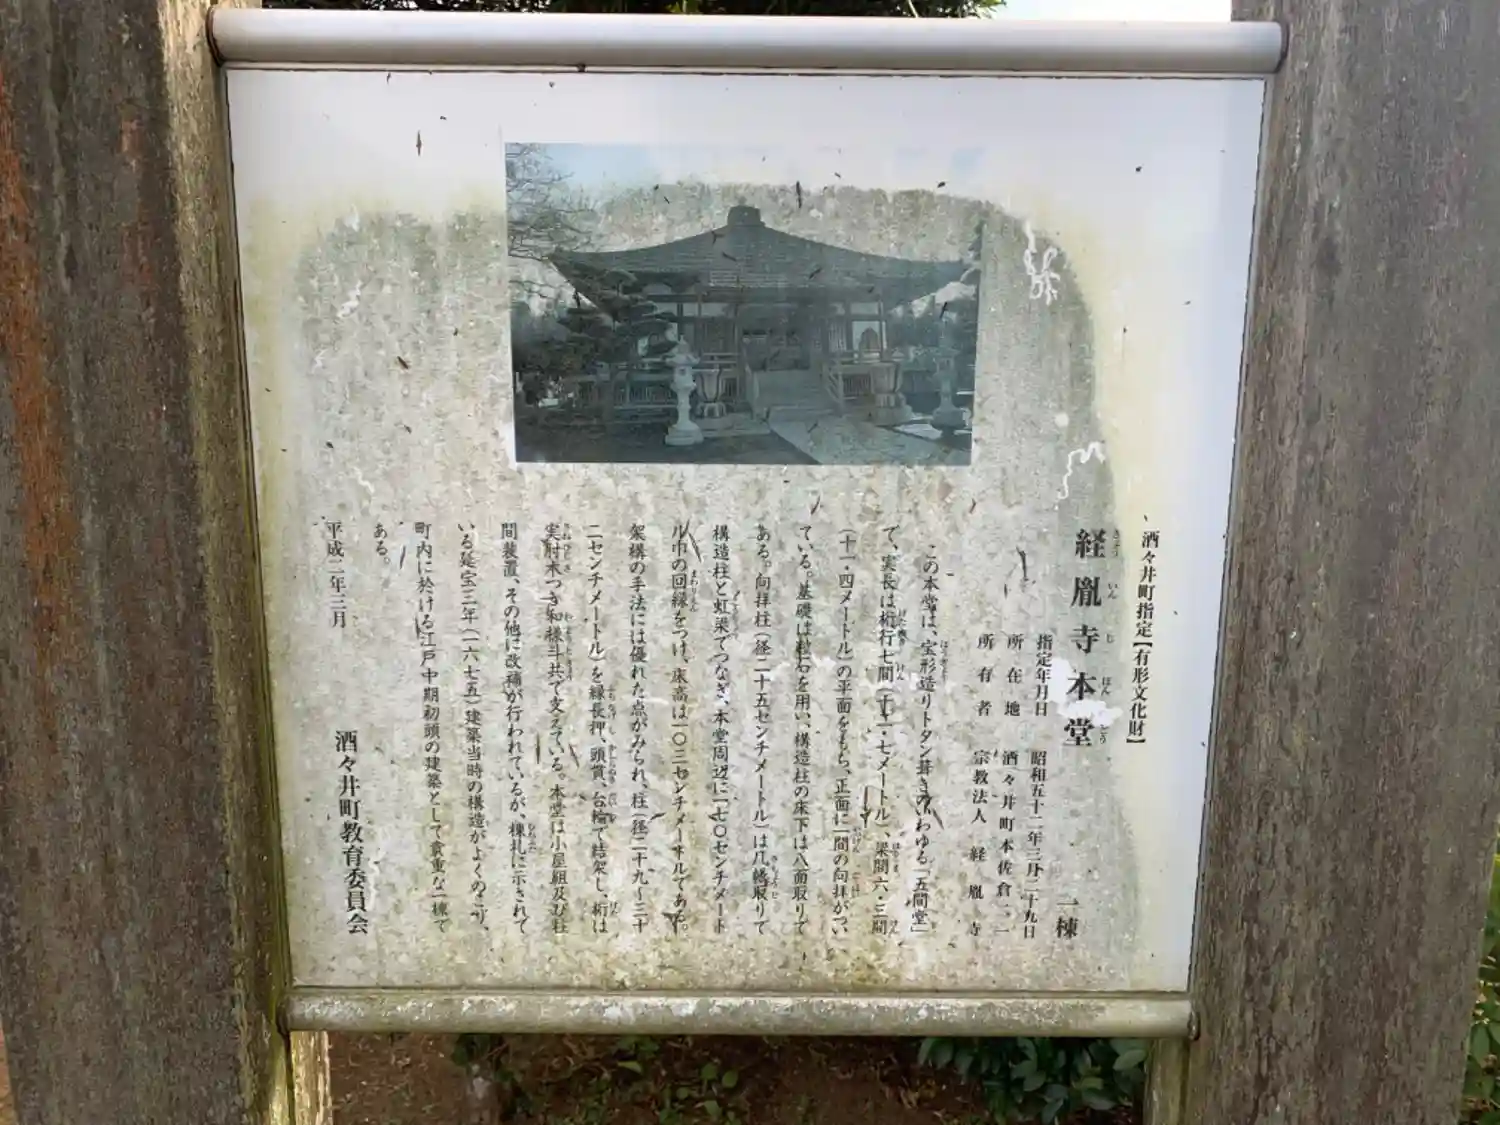 酒々井町指定【有形文化財】
経胤寺本堂 一棟
きょう いん じ ほん どう
指定年月日 昭和五十二年三月二十九日
所在地 酒々井町本佐倉一、一
所有者 宗教法人 経胤寺
この本堂は、宝形造りトタン葺きのいわゆる「五間堂」
で、実長は桁行七間(十二・七メートル)、梁間六・三間
(十一・四メートル)の平面をもち、正面に一間の向拝がつい
ている。基礎は粒石を用い、構造柱の床下は八面取りで
ある。向拝柱(径二十五センチメートル)は几幛取りで
構造柱と虹梁でつなぎ、本堂周辺に一七〇センチメート
ル巾の回縁をつけ、床高は一〇二センチメートルである。
架構の手法には優れた点がみられ、柱(径二十九〜三十
二センチメートル)を縁長押、頭貫、台輪で結架し、桁は
実肘木つき和様斗共で支えている。本堂は小屋組及び柱
間装置、その他に改補が行われているが、棟札に示されて
いる延宝三年(一六七五)建築当時の構造がよくのこり、
町内に於ける江戸中期初頭の建築として貴重な一棟で
ある。
平成二年三月
酒々井町教育委員会